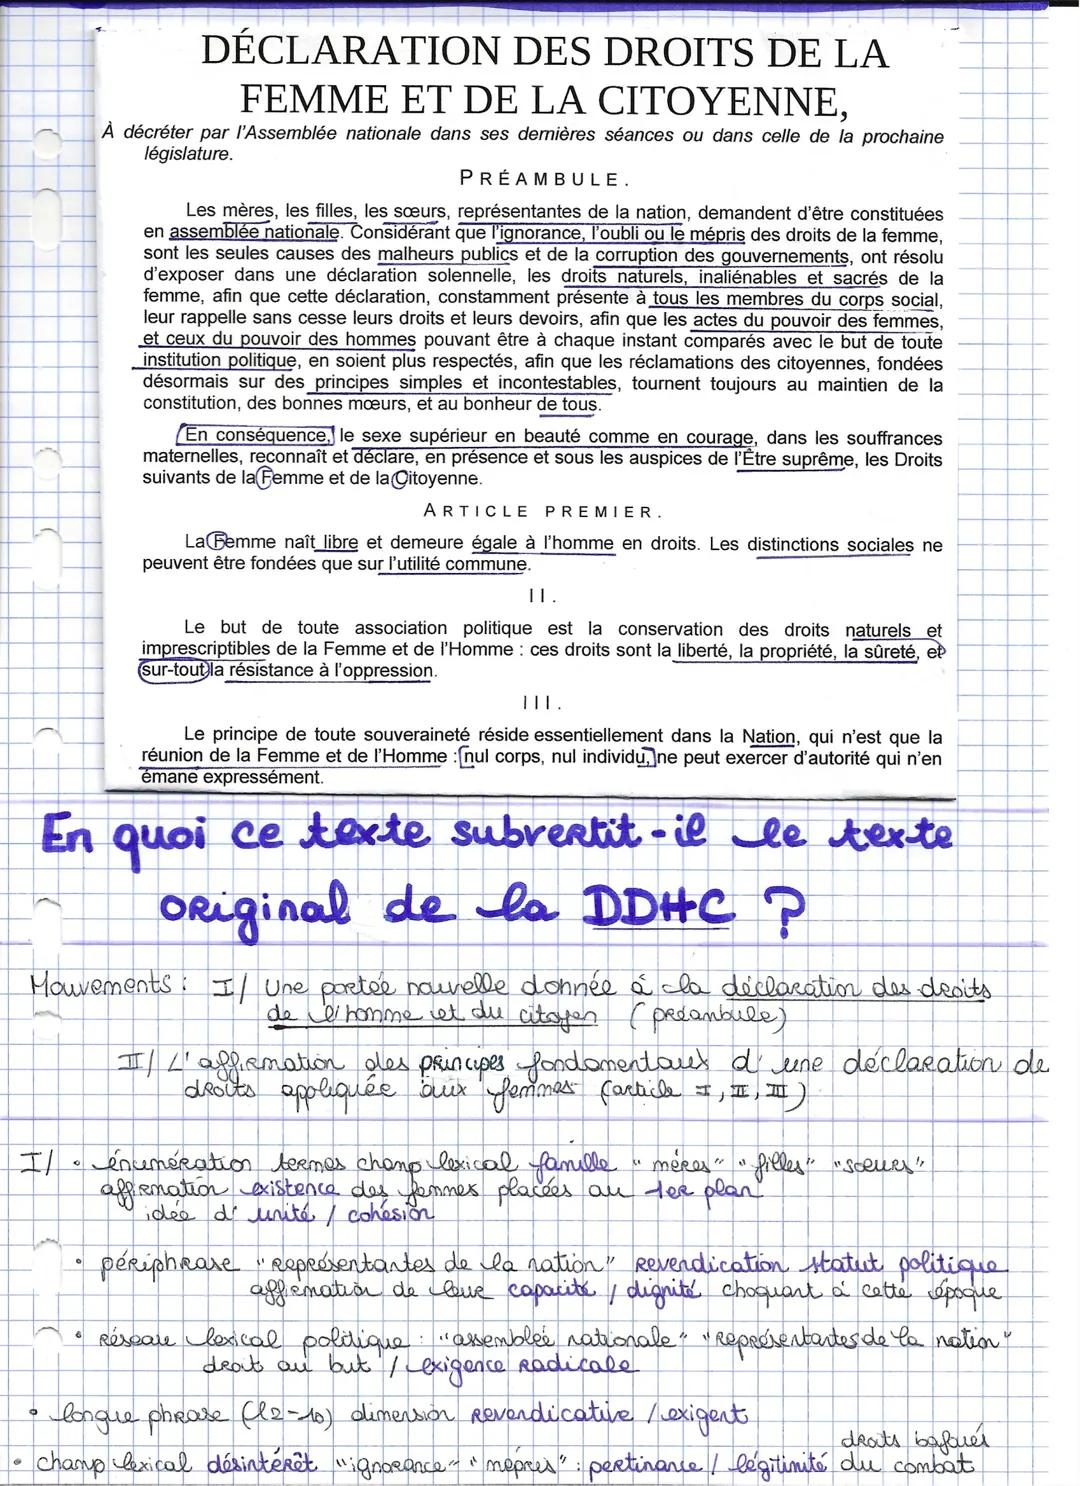 DÉCLARATION DES DROITS DE LA
FEMME ET DE LA CITOYENNE,
À décréter par l'Assemblée nationale dans ses dernières séances ou dans celle de la prochaine
législature.
PRÉAMBULE.
Les mères, les filles, les sœurs, représentantes de la nation, demandent d'être constituées
en assemblée nationale. Considérant que l'ignorance, l'oubli ou le mépris des droits de la femme,
sont les seules causes des malheurs publics et de la corruption des gouvernements, ont résolu
d'exposer dans une déclaration solennelle, les droits naturels, inaliénables et sacrés de la
femme, afin que cette déclaration, constamment présente à tous les membres du corps social,
leur rappelle sans cesse leurs droits et leurs devoirs, afin que les actes du pouvoir des femmes,
et ceux du pouvoir des hommes pouvant être à chaque instant comparés avec le but de toute
institution politique, en soient plus respectés, afin que les réclamations des citoyennes, fondées
désormais sur des principes simples et incontestables, tournent toujours au maintien de la
constitution, des bonnes mœurs, et au bonheur de tous.
En conséquence, le sexe supérieur en beauté comme en courage, dans les souffrances
maternelles, reconnaît et déclare, en présence et sous les auspices de l'Être suprême, les Droits
suivants de la Femme et de la Citoyenne.
ARTICLE PREMIER.
La Femme naît libre et demeure égale à l'homme en droits. Les distinctions sociales ne
peuvent être fondées que sur l'utilité commune.
II.
Le but de toute association politique est la conservation des droits naturels et
imprescriptibles de la Femme et de l'Homme : ces droits sont la liberté, la propriété, la sûreté, et
sur-tout la résistance à l'oppression.
III.
Le principe de toute souveraineté réside essentiellement dans la Nation, qui n'est que la
réunion de la Femme et de l'Homme : nul corps, nul individu, ne peut exercer d'autorité qui n'en
émane expressément.
En quoi ce texte subvertit-il le texte
original de la DDHC ?
Mouvements : I/ Une portée nouvelle donnée à la déclaration des droits
de l'homme et du citoyen (préambule)
II/ L'affirmation des principes fondamentaux d'une déclaration de
droits appliquée aux femmes (article I, II, III)
I/ • énumération termes champ lexical famille "mères" "filles" "soeurs"
affirmation existence des femmes placées au 1er plan
idée d'unité / cohésion
• périphrase "représentantes de la nation" revendication statut politique
affirmation de leur capacité / dignité choquant à cette époque
• réseau lexical politique : "assemblée nationale" "représentantes de la nation"
droit au but / exigence radicale
• longue phrase (l2-10) dimension revendicative / exigent
droits bafoués
• champ lexical désintérêt "ignorance" "mépris" : pertinance / légitimité du combat